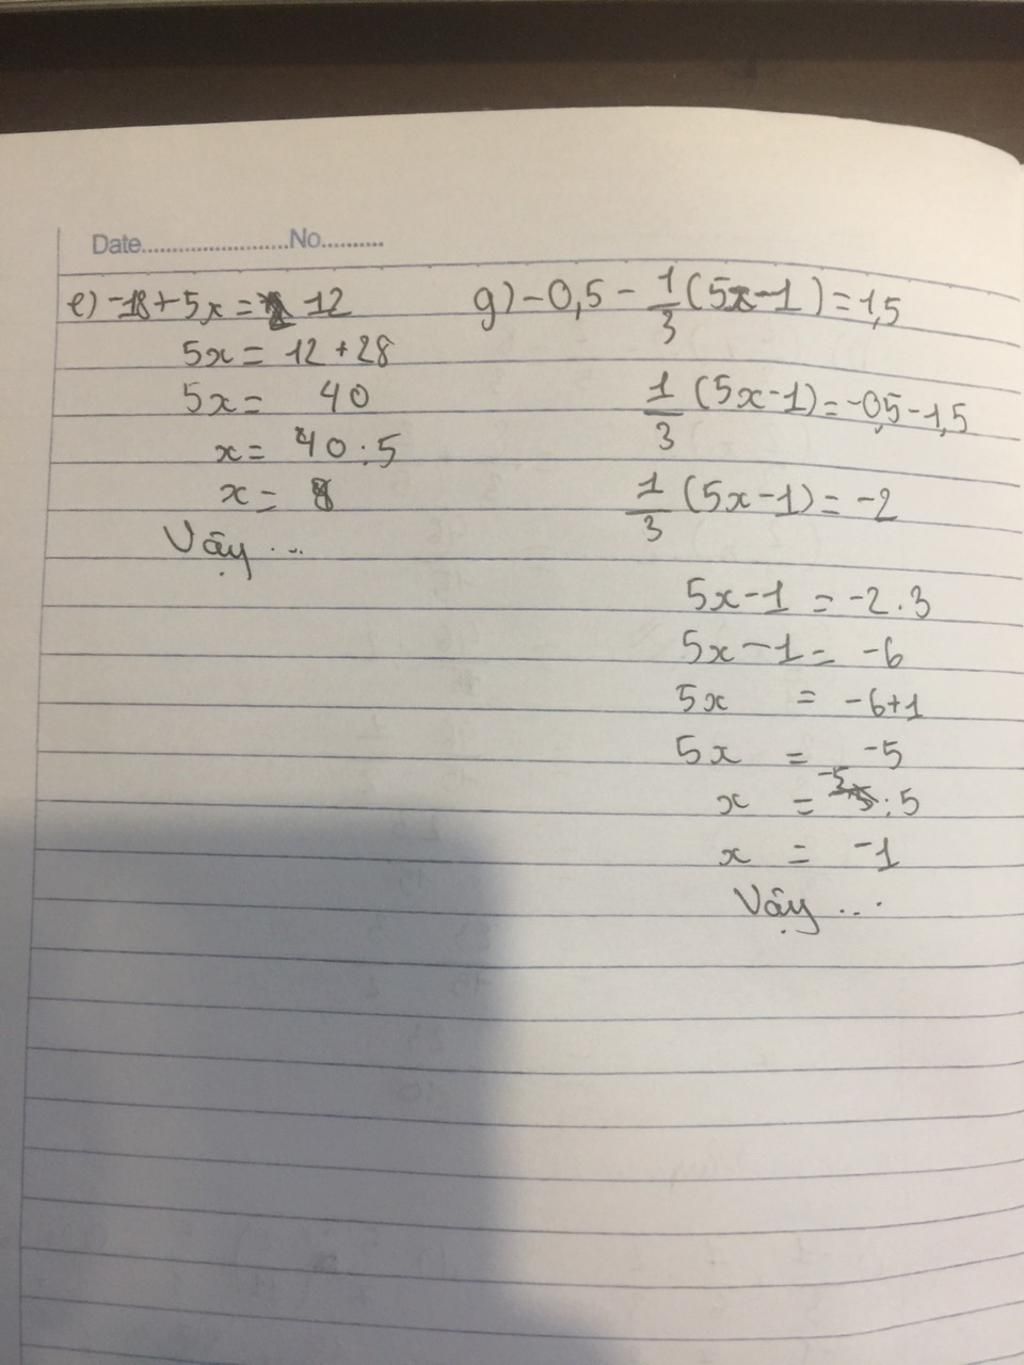 Date......................No..........
e) -18 + 5x = 12
5x = 12 + 28
5x = 40
x = 40 : 5
x = 8
Vậy ...
g) -0,5 - 1/3 (5x - 1) = 1,5
1/3 (5x - 1) = -0,5 - 1,5
1/3 (5x - 1) = -2
5x - 1 = -2 . 3
5x - 1 = -6
5x = -6 + 1
5x = -5
x = -5 : 5
x = -1
Vậy ...